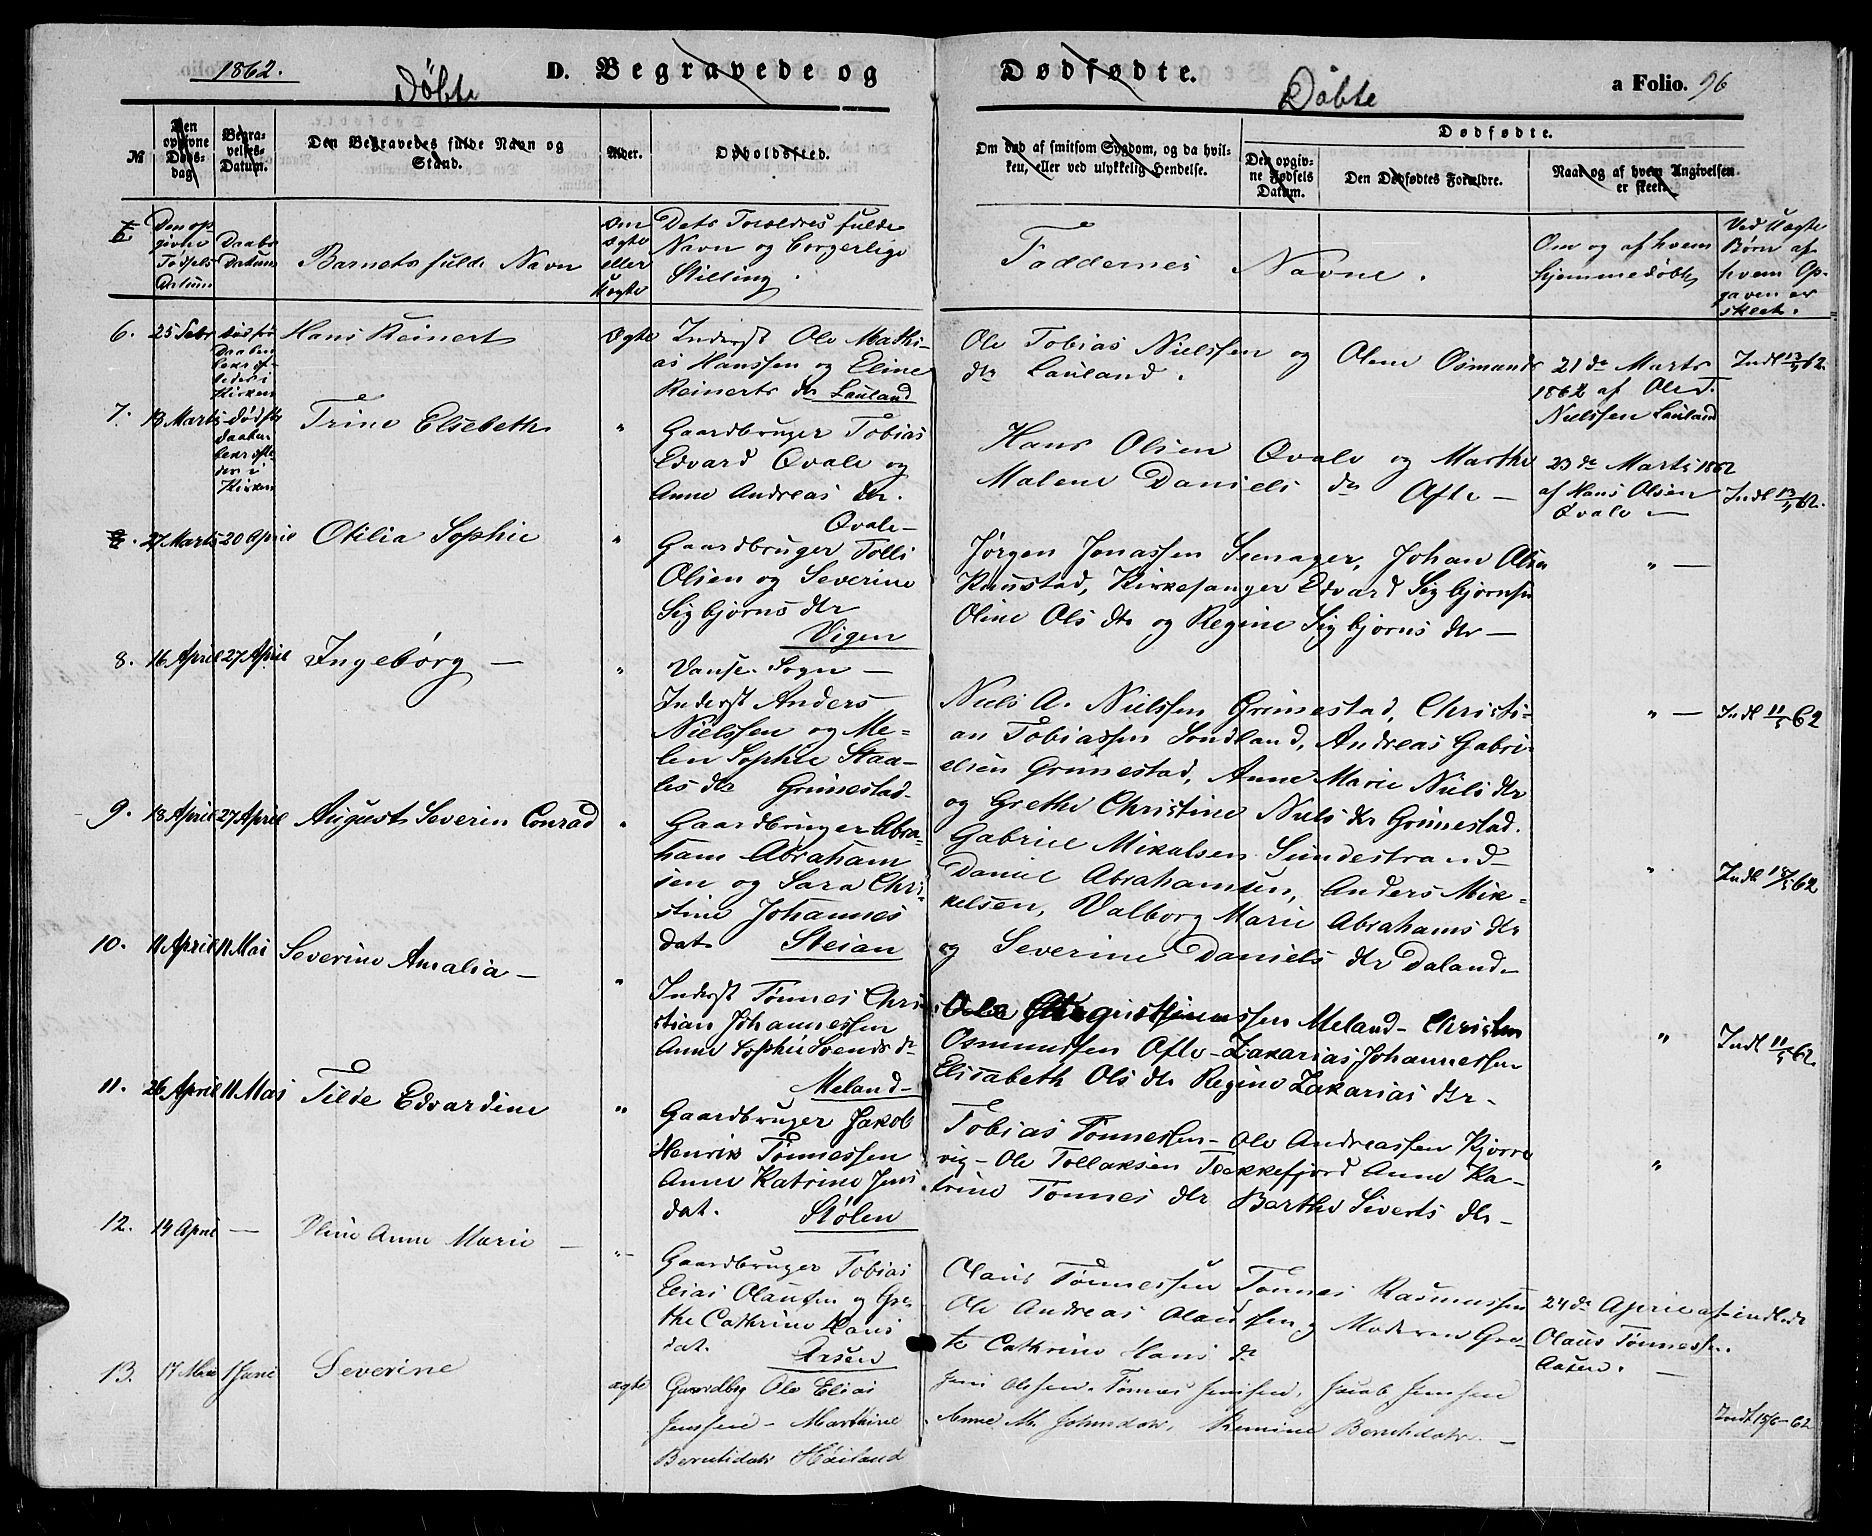 1862.
Døbte
D. Begravede og Dødfødte.
Døbte
a Folio. 96
№
Den opgivne Døds-dag.
Begra-velses-Datum.
Den Begravedes fulde Navn og Stand.
Alder.
Opholdssted.
Om død af smitsom Sygdom, og da hvil-
ken, eller ved ulykkelig Hendelse.
Dødfødte.
Den opgiv-ne Fødsels Datum.
Den Dødfødtes Forældre.
Naar og af hvem Angivelsen er skeet.
Den op-
givne
Fødsels
Datum
Daabs
Datum
Barnets fulde Navn
Om
ægte
eller
Uægte
Dets Forældres fulde
Navn og borgerlige
Stilling.
Faddernes Navne.
Om og af hvem
hjemmedøbt
Ved Uægte
Børn af
hvem Op-
gaven er
skeet.
6. 25 Febr død før
Daaben
bekræf-
tedes i
Kirken
Hans Reinert
Ægte
Inderst Ole Mathi-
as Hanssen og Eline
Reinerts dr Lauland
Ole Tobias Nielssen og Olene Osmunds
dtr Lauland.
21de Marts
1862 af Ole T.
Nielssen Lauland
Indl 13/4 62.
7. 18 Marts død før
daaben
bekræfte-
des i
Kirken
Trine Elsebeth
"
Gaardbruger Tobias
Edvard Qvale og
Anne Andreas dtr.
Qvale—
Hans Olsen Qvale og Marthe
Malene Daniels dr Ofte —
23de Marts 1862
af Hans Olsen
Qvale —
Indl 13/4 62.
27 Marts 20 April Otilia Sophie
"
Gaardbruger Tolli
Olsen og Severine
Sigbjørns dtr
Vigen
Jørgen Jonassen Seenager, Johan Olsen
Knustad, Kirkesanger Edvard Sigbjørnsen
Oline Ols dtr og Regine Sigbjørns dtr —
" —
8. 16 April 27 April Ingebørg —
"
Vanse Sogn —
Inderst Anders
Nielssen og Me-
len Sophie Staa-
les dtr Grimestad
Niels A. Nielssen Grimestad, Christi-
an Tobiassen Sondland, Andreas Gabri-
elsen Grimestad, Anne Marie Niels dtr
og Grethe Christine Niels dtr Grimestad.
" —
Indl 11/5 62
9. 18 April 27 April August Severin Conrad
"
Gaardbruger Abra-
ham Abraham
sen og Sara Chri-
stine Johannes
dat. Steian
Gabriel Mikalsen Sundestrand
Daniel Abrahamsen, Anders Mik-
kelsen, Valborg Marie Abrahams dtr
og Severine Daniels dtr Daland.
"
Indl 18/5 62
10. 11 April 11 Mai Severine Amalia —
"
Inderst Tønnes Chri-
stian Johannessen
Anne Sophie Svends dr
Meland—
Meland — Christen
Osmundsen Ofte — Zakarias Johannessen
Elisabeth Ols dtr Regine Zakarias dtr —
"
Indl 11/5 62
11. 26 April 11 Mai Tilde Edvardine
"
Gaardbruger Jakob
Henrik Tønnessen
Anne Katrine Jens
dat. Stølen
Tobias Tønnessen — Ole Andreassen Kjørre
vig — Ole Tollaksen Flekkefjord Anne Ka-
trine Tønnes dtr Berthe Siverts dtr —
"
12. 14 April — Oline Anne Marie —
"
Gaardbruger Tobias
Elias Olaussen og Gre
the Cathrine Hans
dat.
Olaus Tønnessen Tønnes Rasmussen
Ole Andreas Olaussen Moderen Gre-
te Cathrine Hans dr
24de April af
Olaus Tønnessen
Aasen. —
13. 17 Mai 1 Juni Severine
ægte
Gaardbrg Ole Elias
Jenssen — Marthine
Berntsdatr Høiland
Jens Olssen. Tønnes Jenssen, Jacob Jenssen
Anne M. Johnsdatr, Berntsdatr. —
Indl 15/6—62